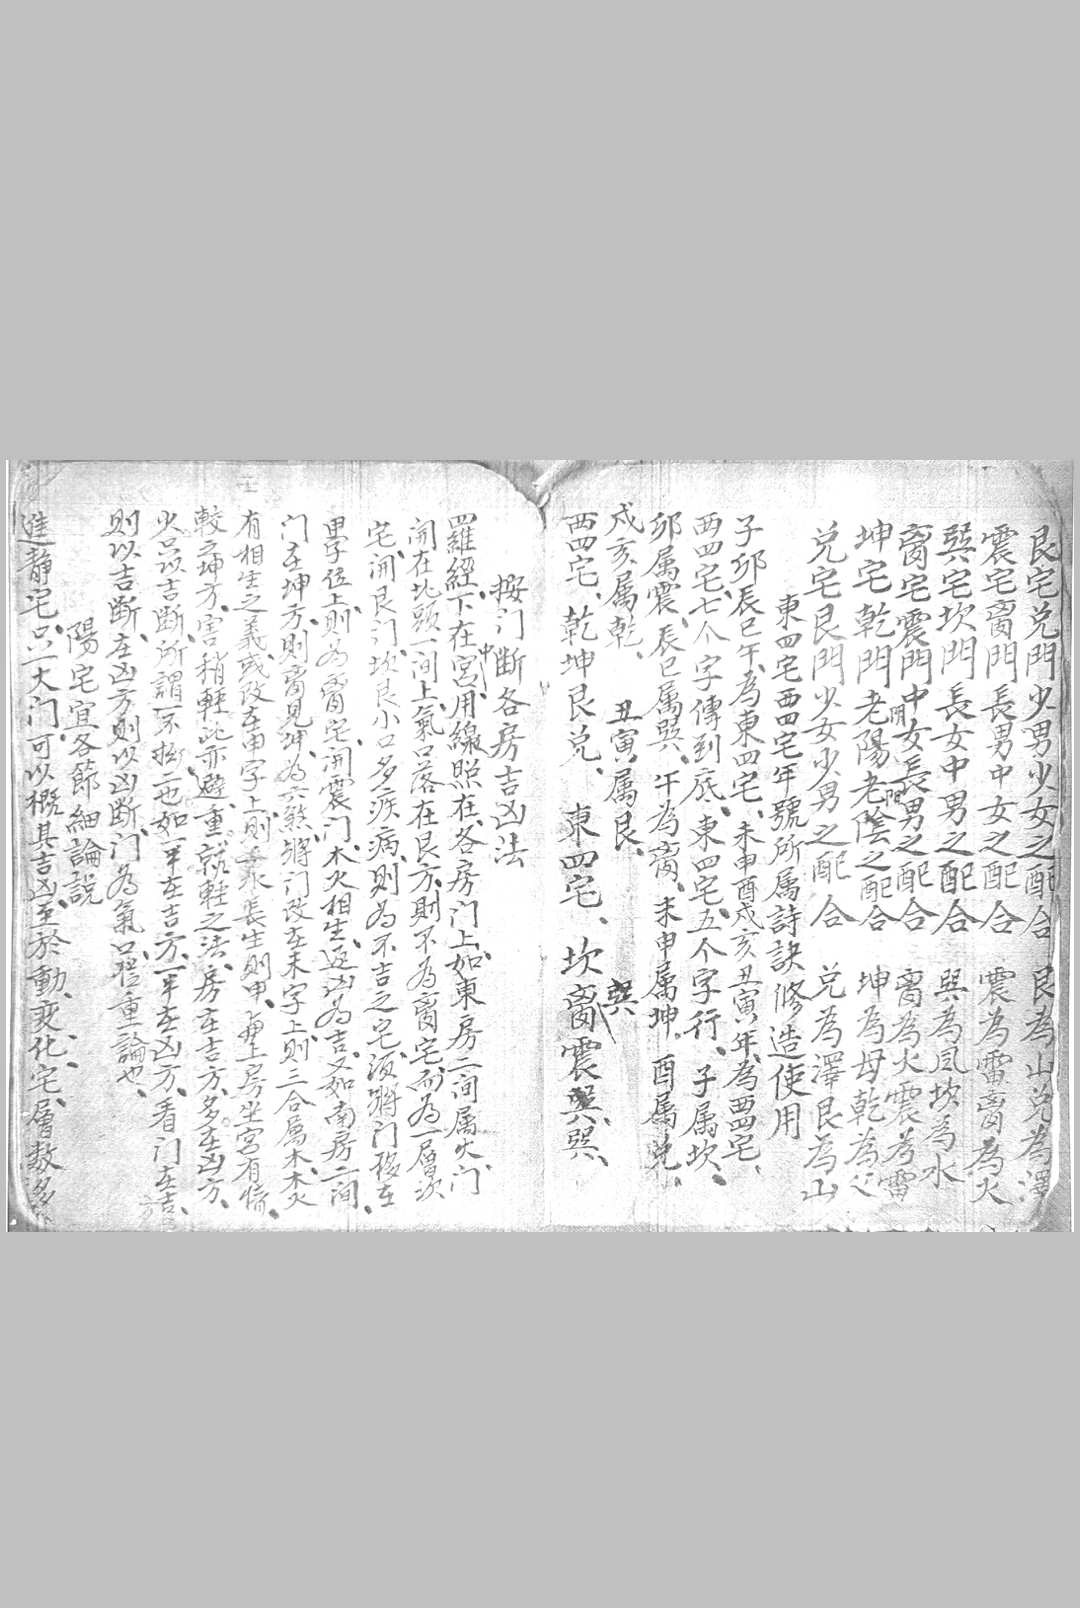 艮宅兑門少男少女之配合 艮為山兑為澤
震宅离門長男中女之配合 震為雷离為火
巽宅坎門長女中男之配合 巽為風坎為水
离宅震門中女長男之配合 离為火震為雷
坤宅乾門老陽老陰之配合 坤為母乾為父
兑宅艮門少女少男之配合 兑為澤艮為山
東四宅西四宅年號所属詩訣修造使用
子卯辰巳午、為東四宅、未申酉戌亥丑寅年、為西四宅、
西四宅、七个字傳到底、東四宅、五个字行、子属坎、
卯属震、辰巳属巽、午為离、未申属坤、酉属兑、
戌亥、属乾、 丑寅属艮、
西四宅、乾坤艮兑、 東四宅、坎离震巽、
按门断各房吉凶法
羅經下在宮中用線照在各房门上、如東房二间属火、门
開在北頭一间上、氣口落在艮方、則不為离宅、而為一層次
宅、開艮门、坎艮小口多疾病、則為不吉之宅、須將门移在
甲字位上、則為离宅、開震门、木火相生、返凶為吉、又如南房二间、
门在坤方、則离見坤、為六煞、將门改在未字上、則三合属木、木火
有相生之義、或改在申字上、則乘長生、則申、上房坐宮有
較之坤方、害稍輕、此亦避重就輕之法、房在吉方、多在凶方、
火只以吉断、所謂一不也、如一半在吉方、一半在凶方、看门在吉方、
則以吉断、在凶方、則以凶断、门為氣口、重論也、
陽宅宜各節細論說
進靜宅、只一大门、可以概其吉凶、至於動、变、化、宅、層数多